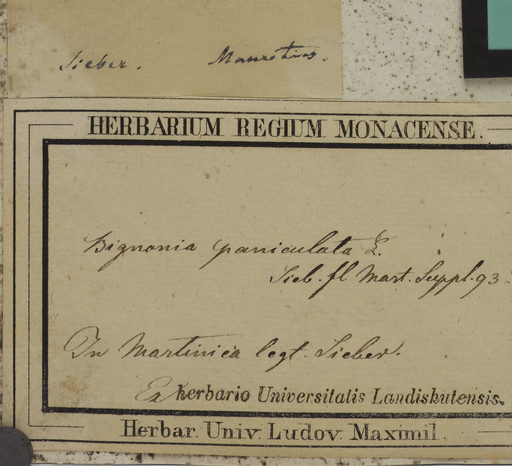 Sieber. Mauritius.
HERBARIUM REGIUM MONACENSE.
Bignonia paniculata L.
Sieb. fl Mart. Suppl. 93.
In Martinica legt. Sieber.
Ex herbario Universitatis Landishutensis.
Herbar. Univ. Ludov. Maximil.